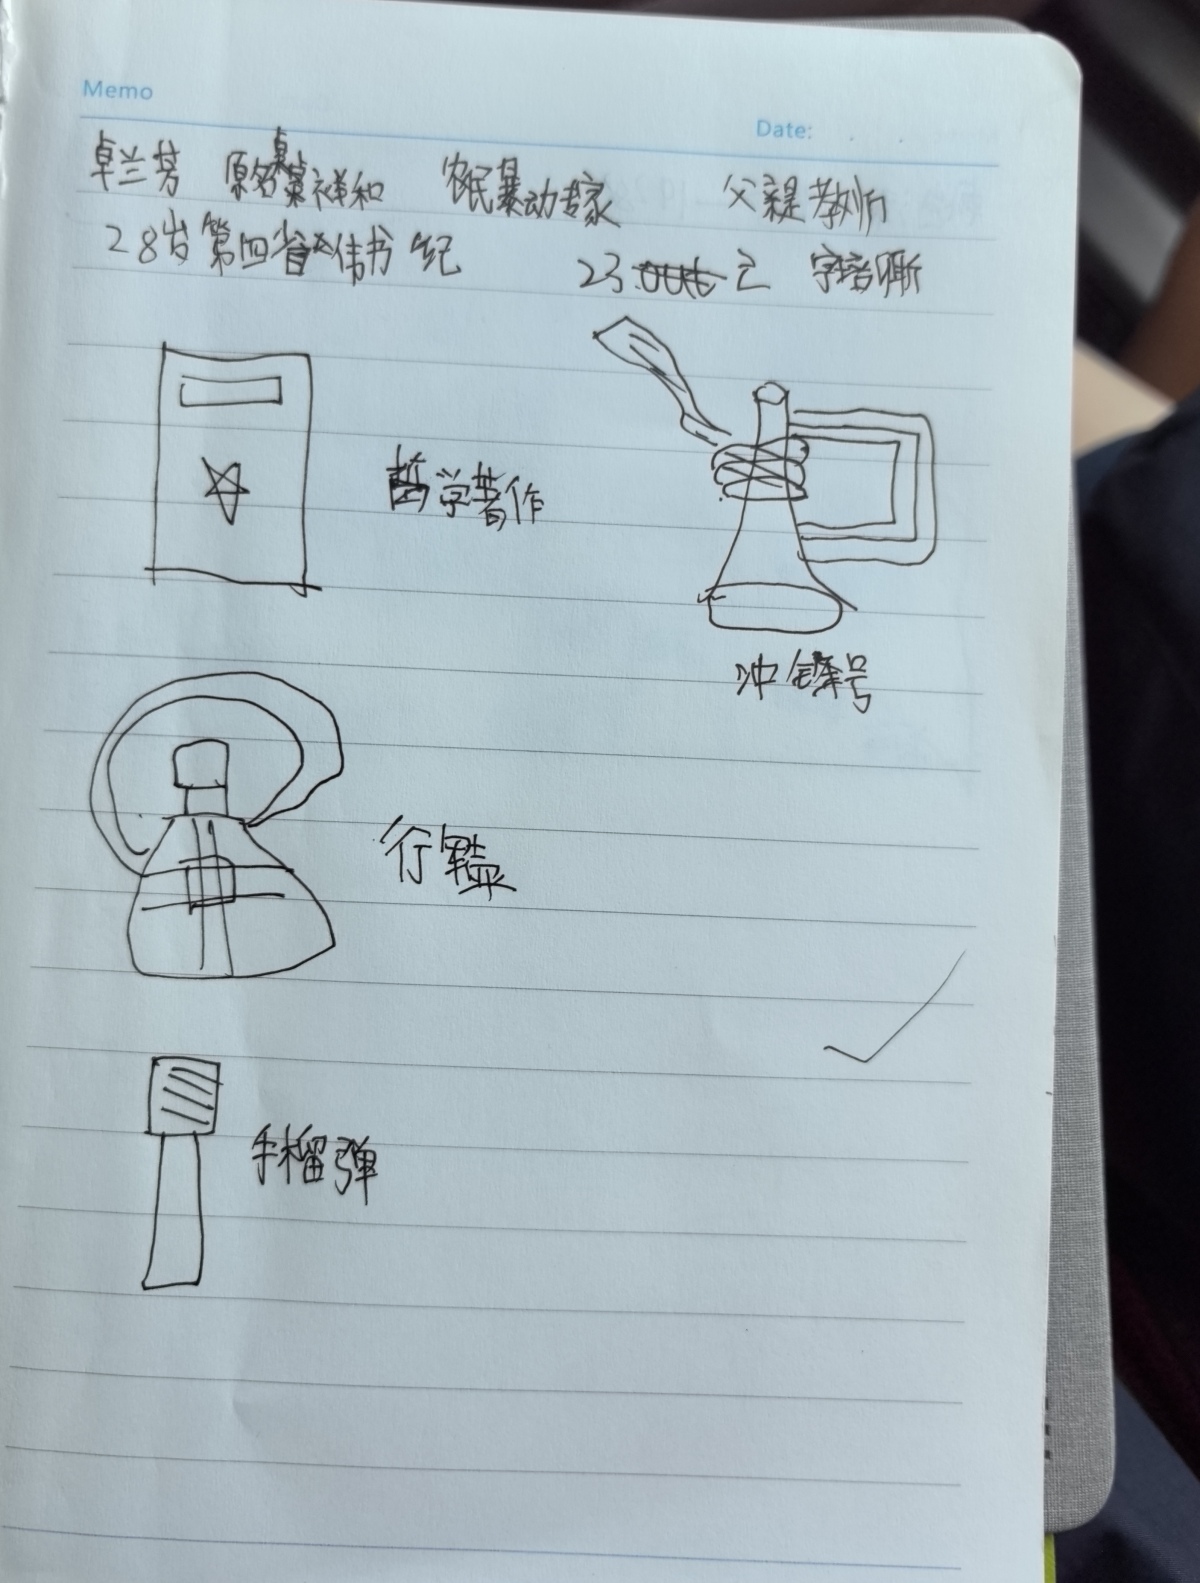 Memo
Date:
卓兰芳 原名卓祥和 农民暴动专家 父亲是教师
28岁第四省委书纪 23 亡 字培卿
哲学著作
冲锋号
行军壶
手榴弹